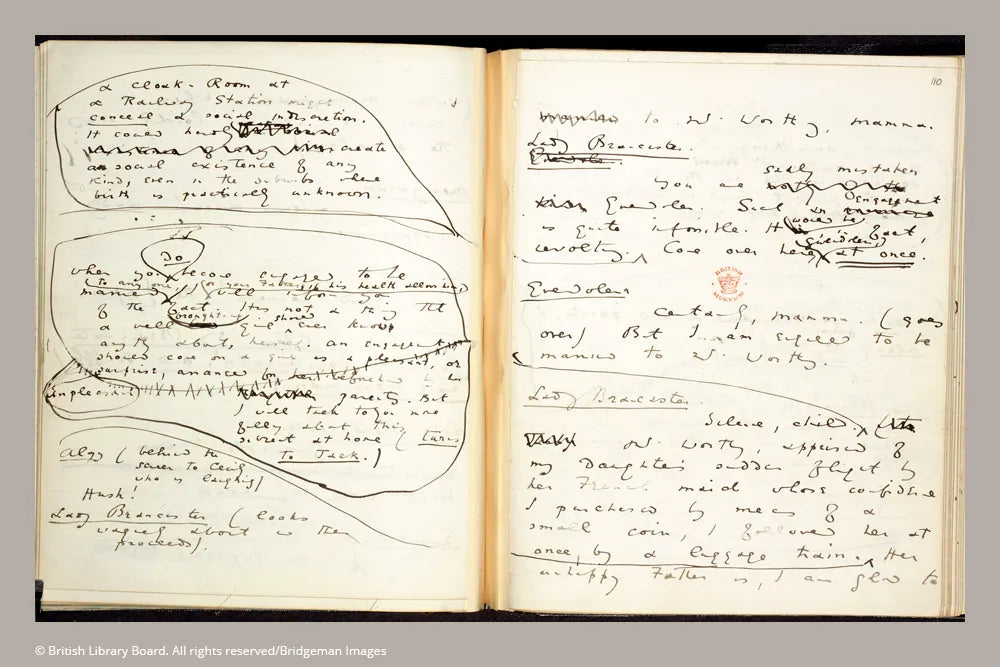 a cloak-Room at
a Railway Station might
conceal a social indiscretion.
It could hardly
create
social existence of any
kind, even in the suburbs where
birth is practically unknown.
Do
When you become engaged to be
(to any one, (or your Father, if his health allows him)
married I will inform you
of the fact. It is not a thing that
brought up should
a well girl ever know
anything about, herself. An engagement
should come on a girl as a pleasant, or
surprise,
unpleasant
parents. But
I will talk to you more
fully about this
subject at home (turns
to Jack.)
Algy (behind the
screen to Cecily
who is laughing)
Hush!
Lady Brancaster (looks
vaguely about &
proceeds).
110
to Mr. Worthy, mamma.
Lady Brancaster.
Gwendolen.
sadly mistaken
You are
Gwendolen. Such an engagement
is quite impossible. It would be, in fact,
(Gwendolen)
revolting. Come over here at once.
BRITISH MUSEUM
Gwendolen
Certainly, mamma. (goes
over) But I am engaged to be
married to Mr. Worthy.
Lady Brancaster.
Silence, child.
Mr. Worthy, apprised of
my Daughter's sudden flight by
her French maid whose confidence
I purchased by means of a
small coin, I followed her at
once, by a luggage train. Her
unhappy Father is, I am glad to
© British Library Board. All rights reserved/Bridgeman Images